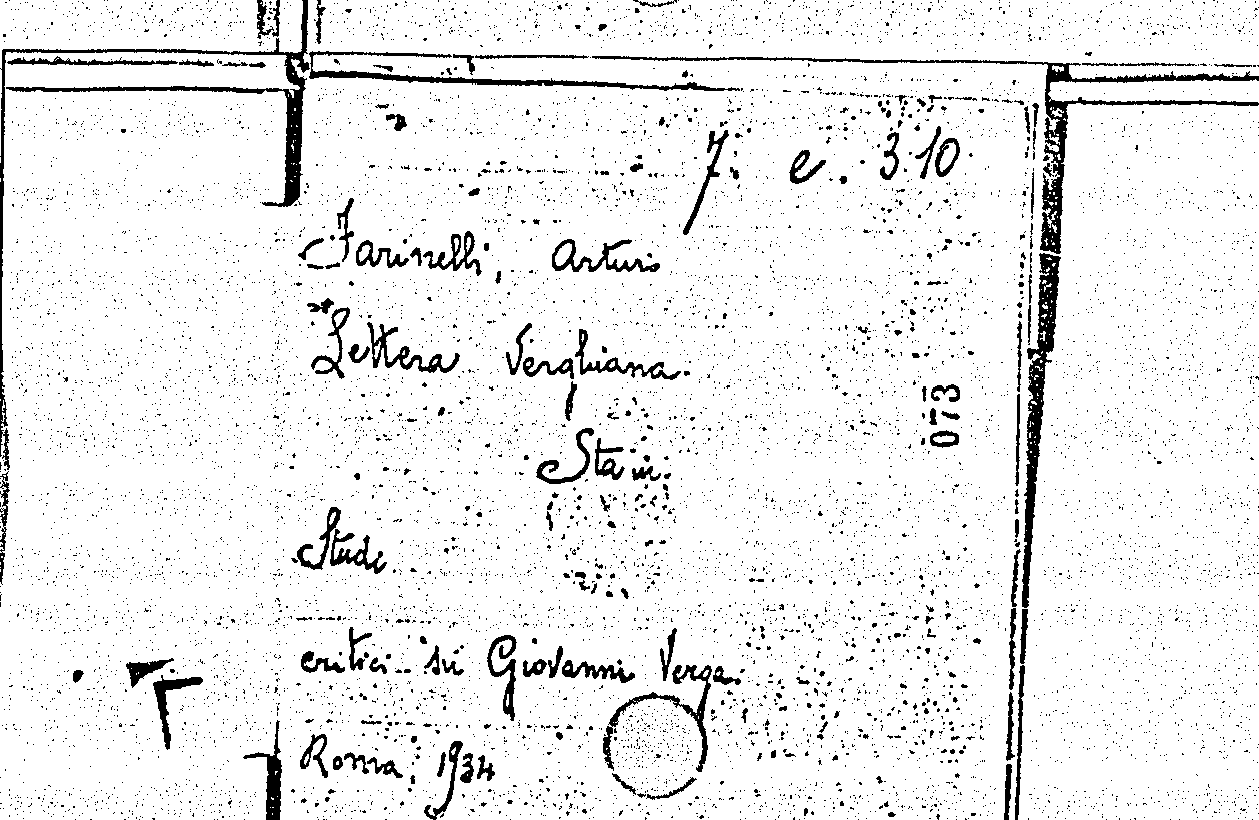 7. e. 3.10
Farinelli, Arturo
Lettera Verghiana.
Sta in.
Studi
critici su Giovanni Verga.
Roma, 1934
073